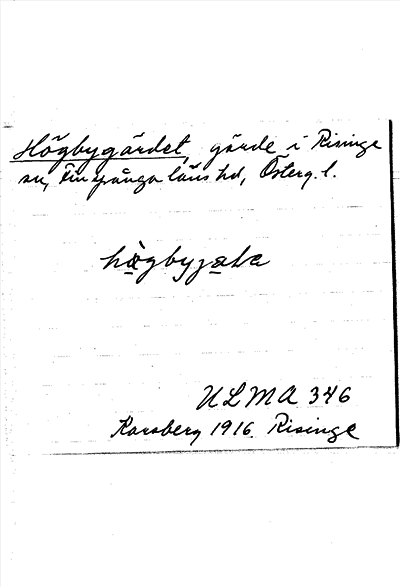 Högbygärdet, gärde i Risinge
sn, Finspånga läns hd, Österg. l.
högbyjæka
ULMA 346
Karsberg 1916. Risinge